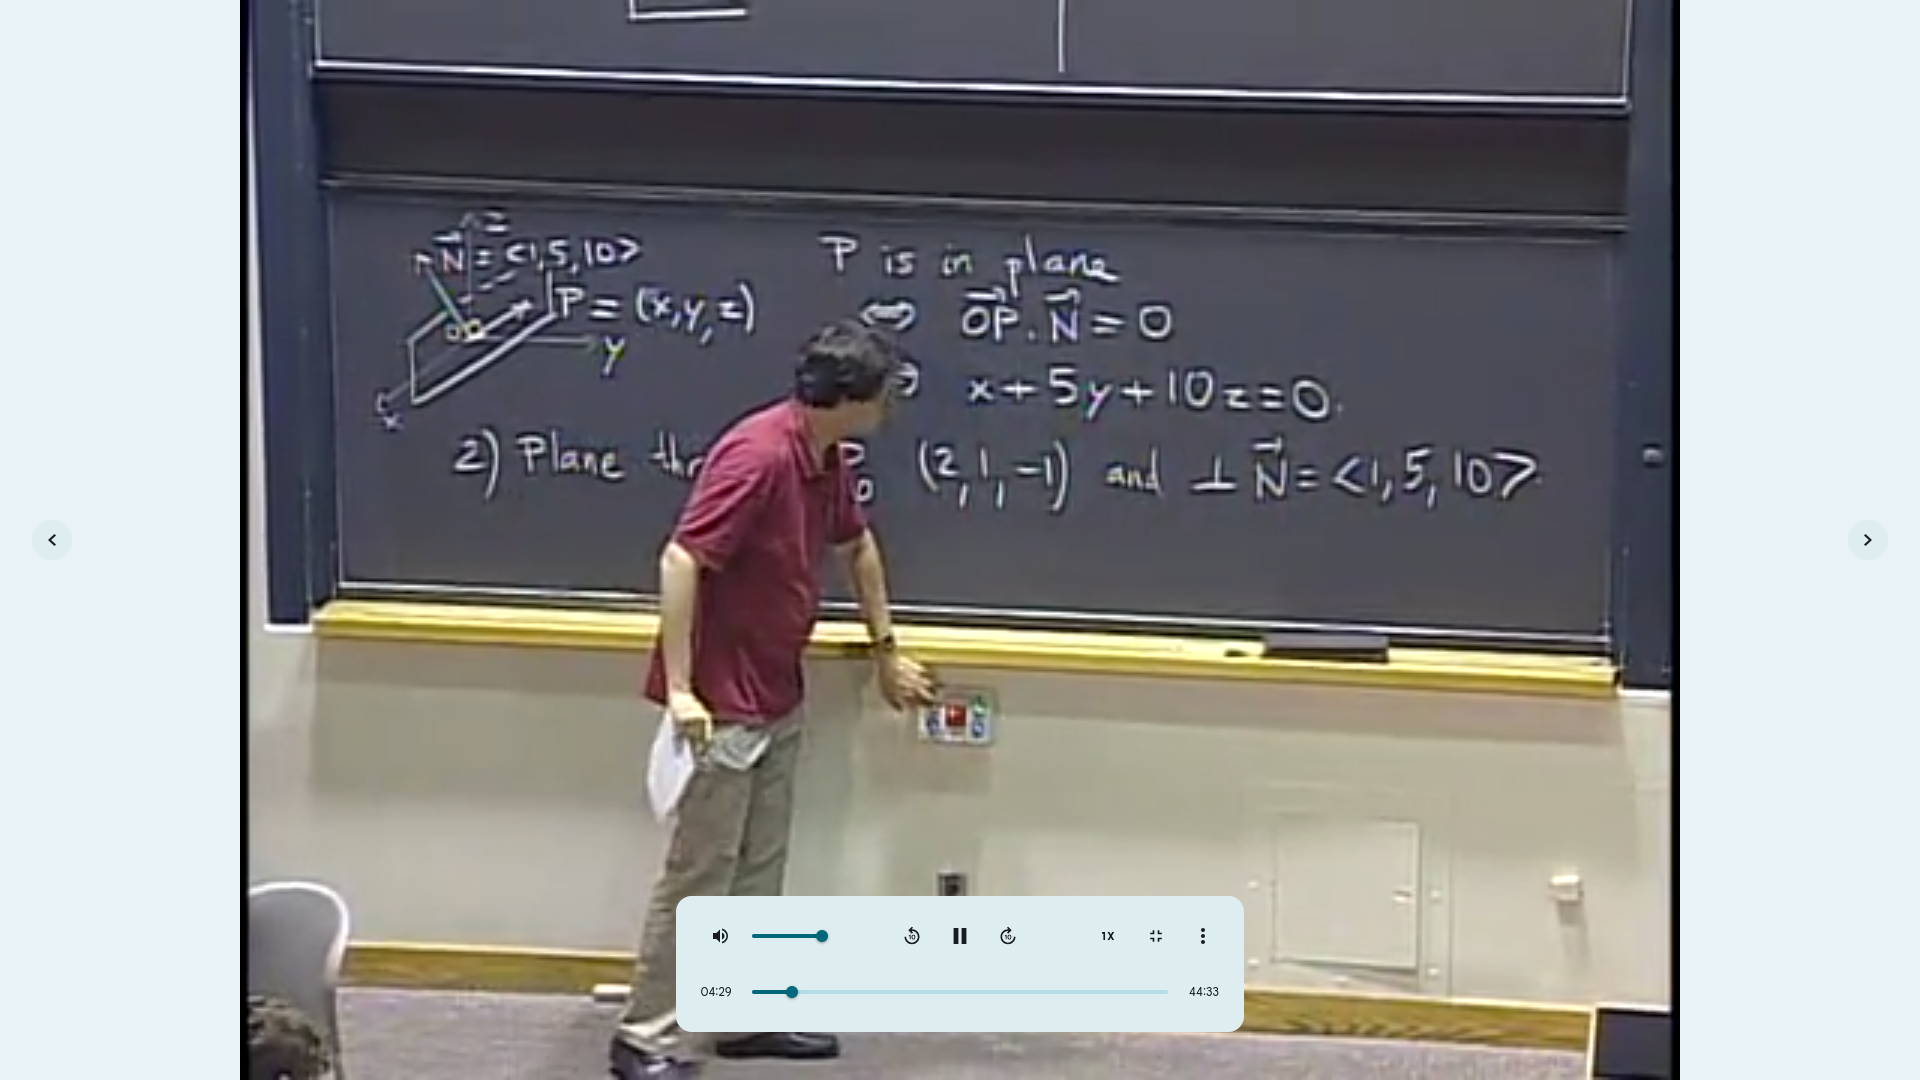 z
N = <1,5,10>
P = (x,y,z)
O
y
x
P is in plane
⇔ OP . N = 0
x+5y+10z=0.
2) Plane P0 (2,1,-1) and ⊥ N = <1,5,10>.
10
10
1X
04:29
44:33